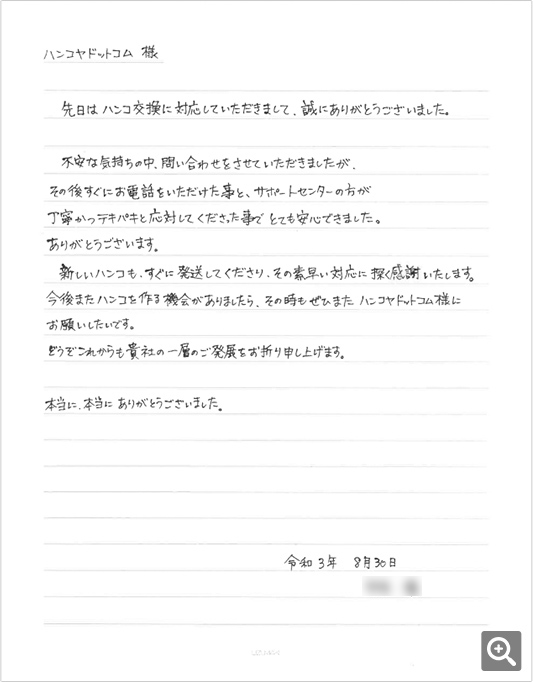 ハンコヤドットコム 様
先日は ハンコ交換に対応していただきまして、誠にありがとうございました。
不安な気持ちの中、問い合わせをさせていただきましたが、
その後すぐにお電話をいただけた事と、サポートセンターの方が
丁寧かつテキパキと応対してくださった事で とても安心できました。
ありがとうございます。
新しいハンコも、すぐに発送してくださり、その素早い対応に 深く感謝いたします。
今後また ハンコを作る機会がありましたら、その時もぜひまた ハンコヤドットコム様に
お願いしたいです。
どうぞこれからも貴社の一層のご発展をお折り申し上げます。
本当に、本当に ありがとうございました。
令和 3年 8月30日